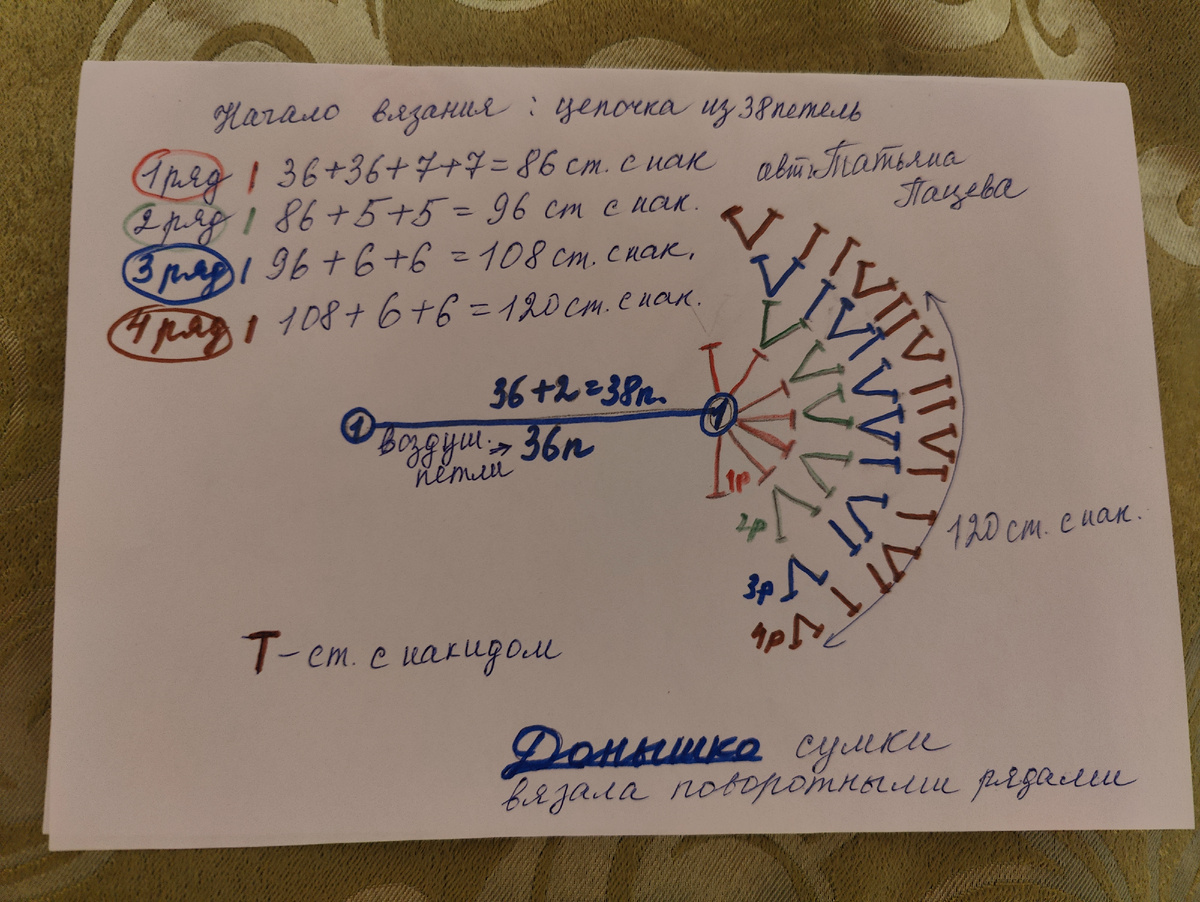 Начало вязания : цепочка из 38 петель
1 ряд | 36+36+7+7=86 ст. с нак
авт. Татьяна
Пацева
2 ряд | 86+5+5=96 ст с нак.
3 ряд | 96+6+6=108 ст. с нак.
4 ряд | 108+6+6=120 ст. с нак.
36+2=38п.
1
1
воздуш.
петли
→ 36п
1р
2р
3р
4р
120 ст. с нак.
Т – ст. с накидом
Донышко сумки
вязала поворотными рядами